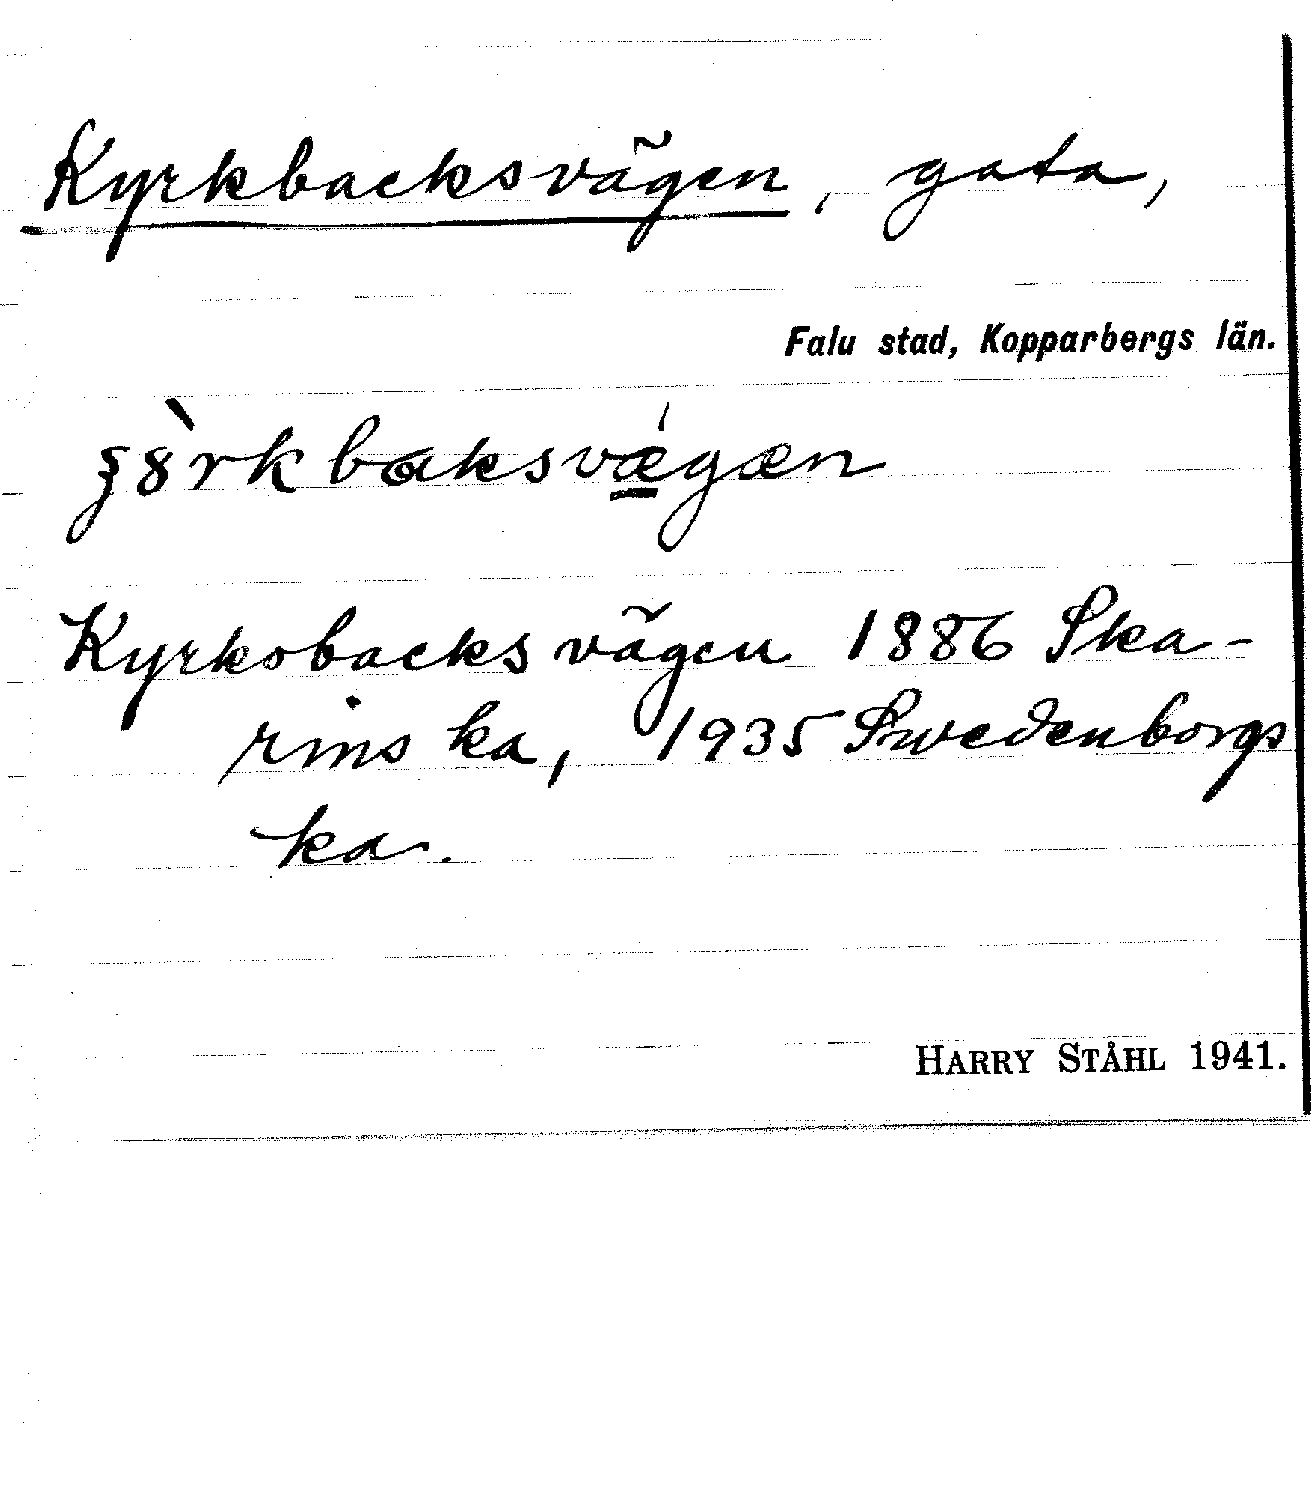 Kyrkbacksvägen, gata,
Falu stad, Kopparbergs län.
Kyrkobacksvägen 1886 Ska-
rinska, 1935 Swedenborgs
ka.
HARRY STÅHL 1941.